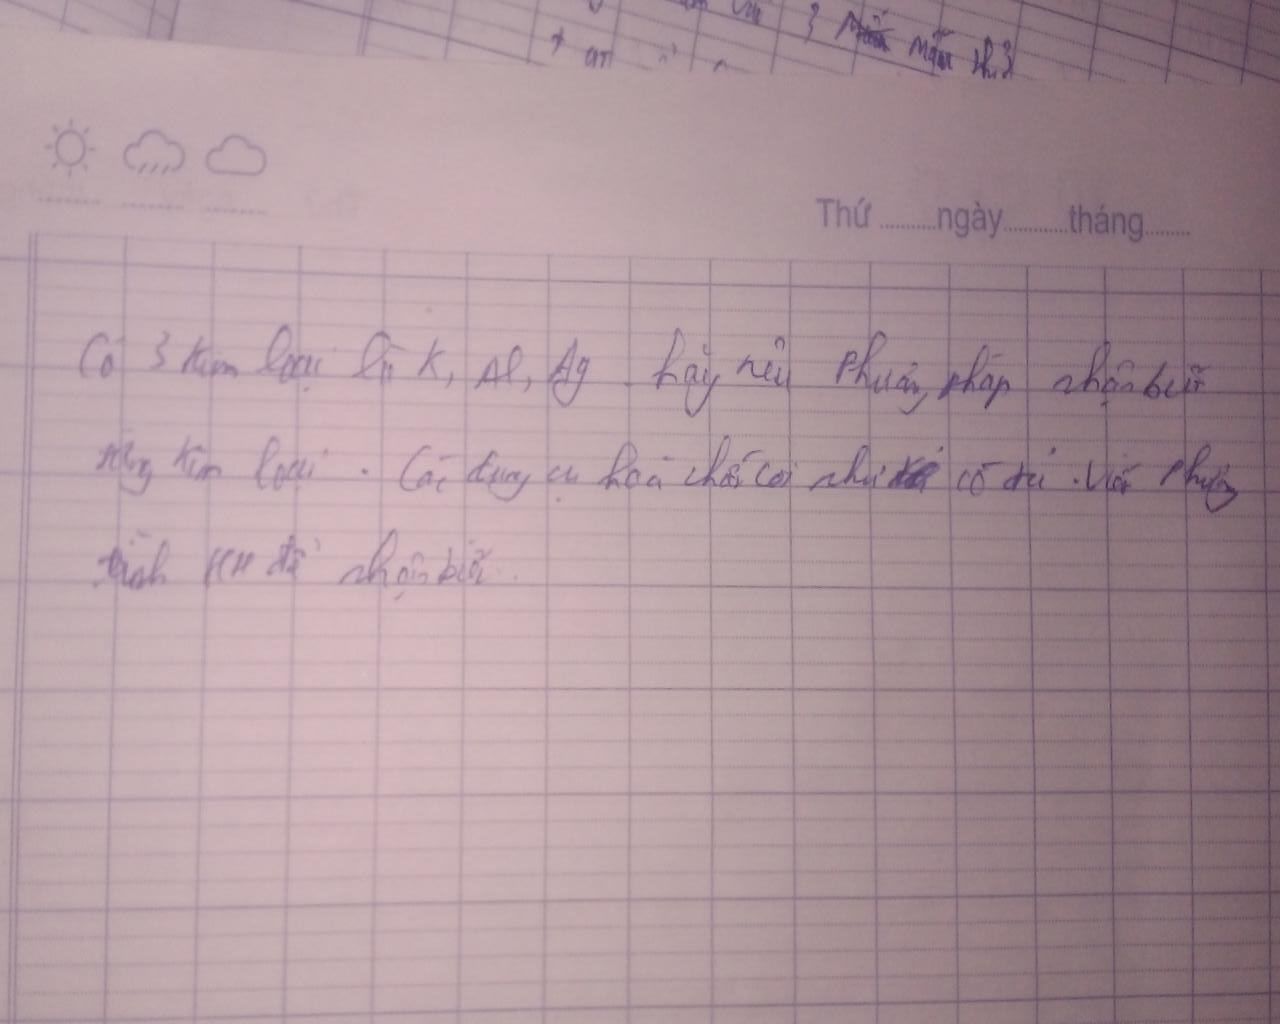 3 Mẫu thử
Thứ ..........ngày............tháng........
Có 3 kim loại là K, Al, Ag hãy nêu Phương pháp nhận biết
từng kim loại. Các dụng cụ hoá chất coi như có đủ. Viết Phương
trình HH để nhận biết.